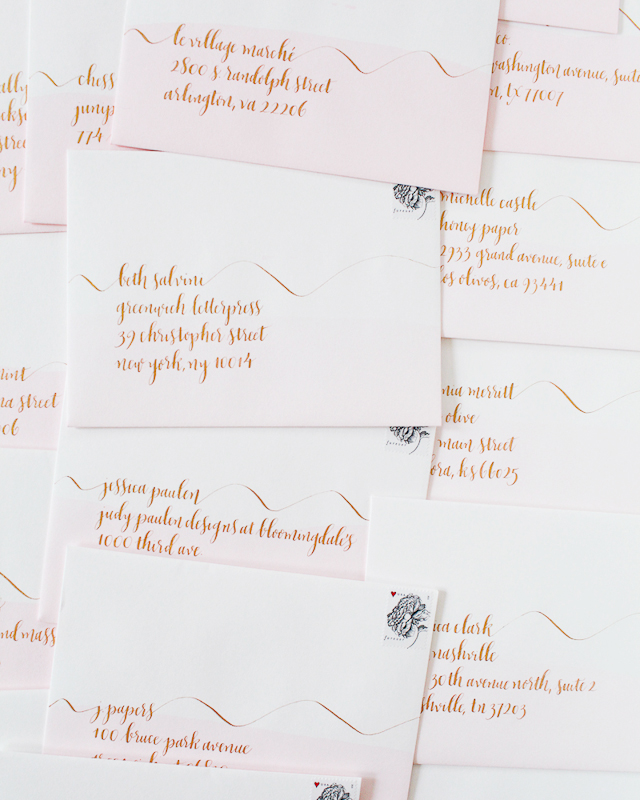 le village marché
2800 s. randolph street
arlington, va 22206
co.
washington avenue, suite
tx 77007
chess
114
ny
michelle castle
honey paper
2933 grand avenue, suite c
los olivos, ca 93441
beth salvini
greenwich letterpress
39 christopher street
new york, ny 10014
forever
street
merritt
olive
main street
ks 66025
jessica paulen
judy paulen designs at bloomingdale's
1000 third ave.
forever
clark
nashville
30th avenue north, suite 2
tn 37203
and mass
j. papers
100 bruce park avenue
forever